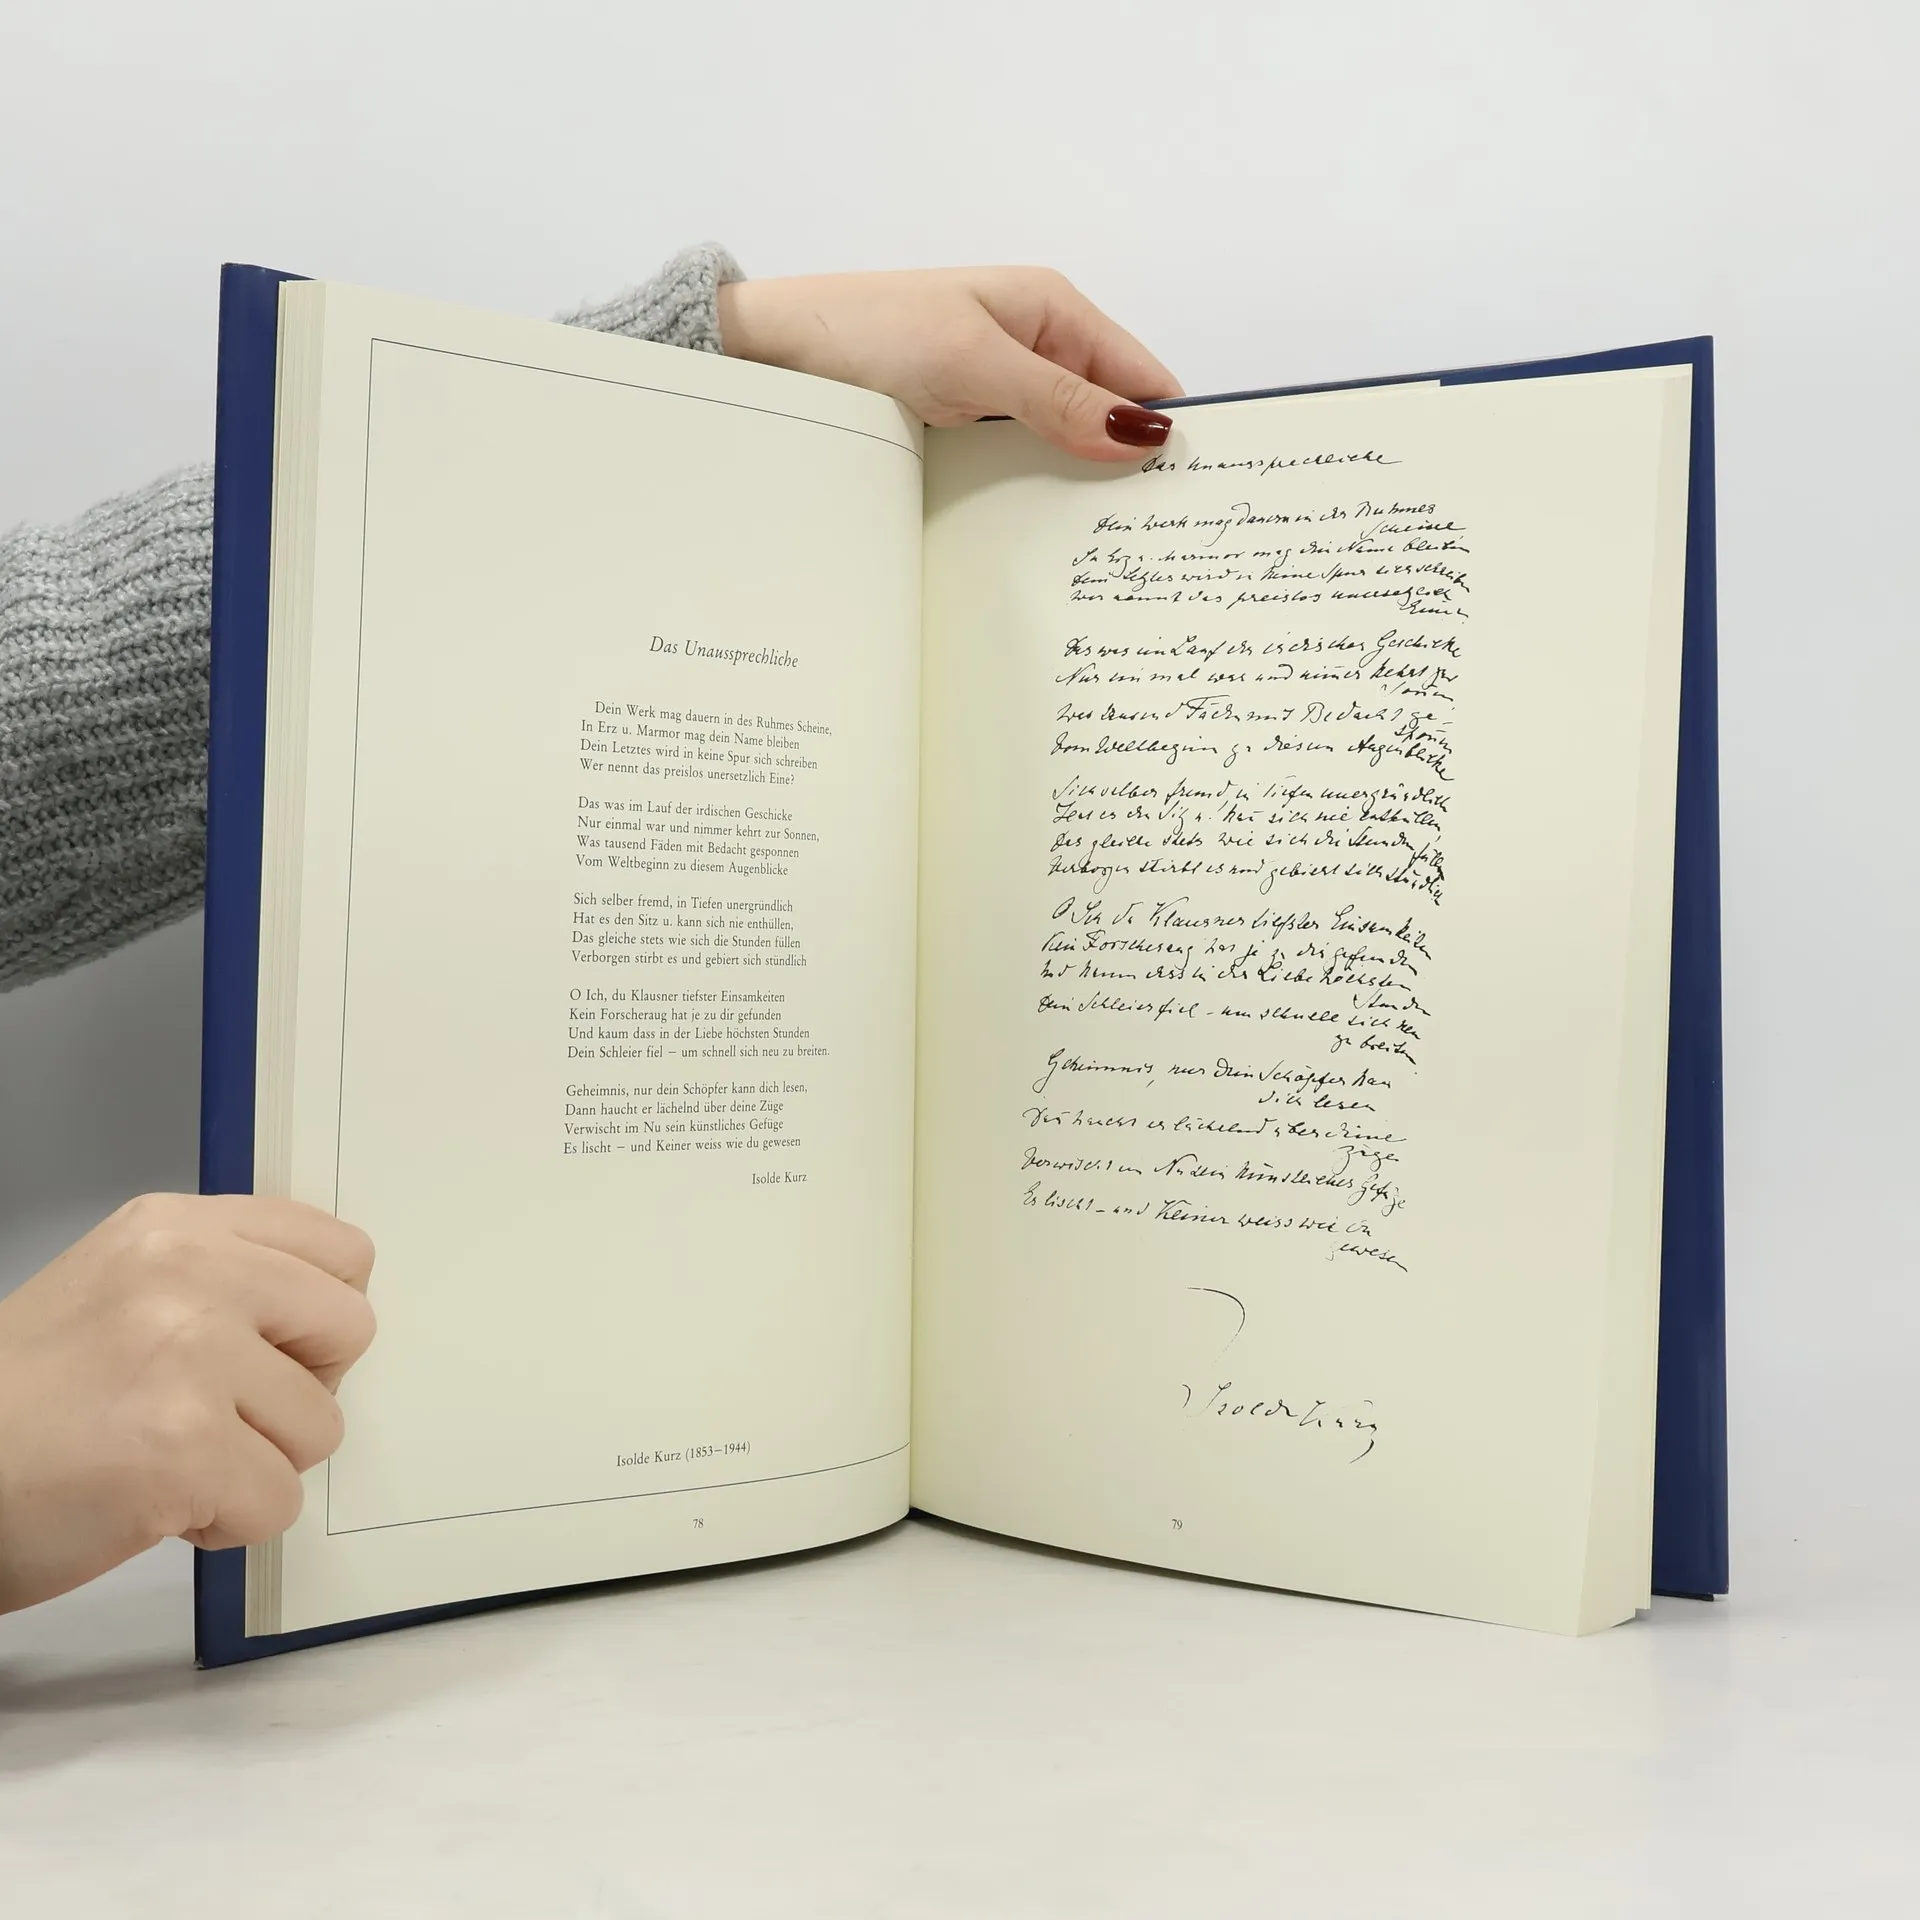 Das Unaussprechliche
Dein Werk mag dauern in des Ruhmes Scheine,
In Erz u. Marmor mag dein Name bleiben
Dein Letztes wird in keine Spur sich schreiben
Wer nennt das preislos unersetzlich Eine?
Das was im Lauf der irdischen Geschicke
Nur einmal war und nimmer kehrt zur Sonnen,
Was tausend Fäden mit Bedacht gesponnen
Vom Weltbeginn zu diesem Augenblicke
Sich selber fremd, in Tiefen unergründlich
Hat es den Sitz u. kann sich nie enthüllen,
Das gleiche stets wie sich die Stunden füllen
Verborgen stirbt es und gebiert sich stündlich
O Ich, du Klausner tiefster Einsamkeiten
Kein Forscheraug hat je zu dir gefunden
Und kaum dass in der Liebe höchsten Stunden
Dein Schleier fiel – um schnell sich neu zu breiten.
Geheimnis, nur dein Schöpfer kann dich lesen,
Dann haucht er lächelnd über deine Züge
Verwischt im Nu sein künstliches Gefüge
Es lischt – und Keiner weiss wie du gewesen
Isolde Kurz
Isolde Kurz (1853–1944)
78
Das Unaussprechliche
Dein Werk mag dauern in des Ruhmes
Scheine
In Erz u. Marmor mag dein Name bleiben
Dein Letztes wird in keine Spur sich schreiben
Wer nennt das preislos unersetzlich
Eine?
Das was im Lauf der irdischen Geschicke
Nur einmal war und nimmer kehrt zur
Sonnen,
Was tausend Fäden mit Bedacht ge-
sponnen
Vom Weltbeginn zu diesem Augenblicke
Sich selber fremd, in Tiefen unergründlich
Hat es den Sitz u. kann sich nie enthüllen,
Das gleiche stets wie sich die Stunden füllen
Verborgen stirbt es und gebiert sich stündlich
O Ich du Klausner tiefster Einsamkeiten
Kein Forscheraug hat je zu dir gefunden
Und kaum dass in der Liebe höchsten
Stunden
Dein Schleier fiel – um schnell sich neu
zu breiten
Geheimnis, nur dein Schöpfer kann
dich lesen
Dann haucht er lächelnd über deine
Züge
Verwischt im Nu sein künstliches Gefüge
Es lischt – und Keiner weiss wie du
gewesen
Isolde Kurz
79